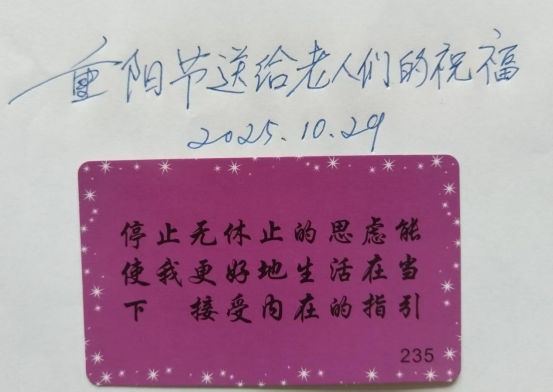 重阳节送给老人们的祝福
2025.10.29
停止无休止的思虑能
使我更好地生活在当
下 接受内在的指引
235